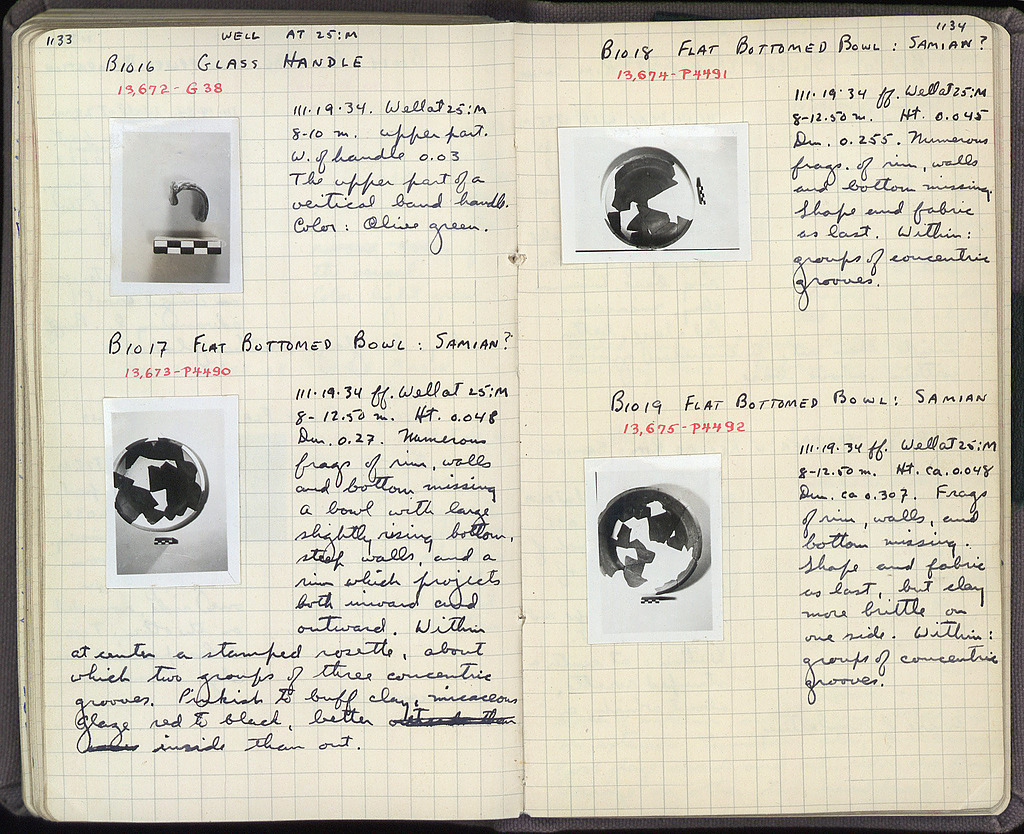 1133
WELL AT 25:M
B1016 GLASS HANDLE
13,672-G38
111.19.34. Well at 25:M
8-10 m. upper part.
W. of handle 0.03
The upper part of a
vertical band handle.
Color: Olive green.
B1017 FLAT BOTTOMED BOWL: SAMIAN?
13,673-P4490
111.19.34 ff. Well at 25:M
8-12.50 m. Ht. 0.048
Dm. 0.27. Numerous
frags of rim, walls
and bottom missing
a bowl with large
slightly rising bottom,
steep walls, and a
rim which projects
both inward and
outward. Within
at center a stamped rosette, about
which two groups of three concentric
grooves. Pinkish to buff clay, micaceous
glaze red to black, better
inside than out.
1134
B1018 FLAT BOTTOMED BOWL: SAMIAN?
13,674-P4491
111.19.34 ff. Well at 25:M
8-12.50 m. Ht. 0.045
Dm. 0.255. Numerous
frags. of rim, walls
and bottom missing.
Shape and fabric
as last. Within:
groups of concentric
grooves.
B1019 FLAT BOTTOMED BOWL: SAMIAN
13,675-P4492
111.19.34 ff. Well at 25:M
8-12.50 m. Ht. ca. 0.048
Dm. ca 0.307. Frags
of rim, walls, and
bottom missing.
Shape and fabric
as last, but clay
more brittle on
one side. Within:
groups of concentric
grooves.